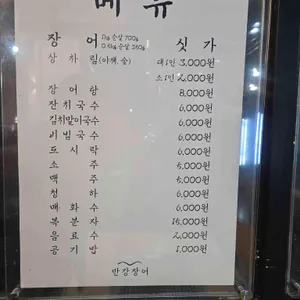 메뉴
장어 1kg 순살 700g 0.5kg 순살 350g 싯가
상차림(야채,술) 대1인 3,000원
소1인 2,000원
장어탕 8,000원
잔치국수 6,000원
김치말이국수 6,000원
비빔국수 6,000원
도시락 6,000원
소주 5,000원
맥주 5,000원
청하 6,000원
매화수 6,000원
복분자 15,000원
음료수 2,000원
공기밥 1,000원
반강장어